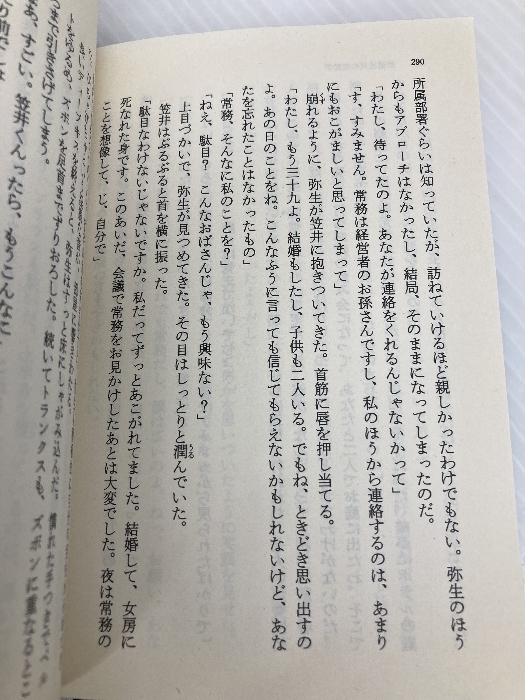 290
所属部署ぐらいは知っていたが、訪ねていけるほど親しかったわけでもない。弥生のほう
からもアプローチはなかったし、結局、そのままになってしまったのだ。
「わたし、待ってたのよ。あなたが連絡をくれるんじゃないかって」
「す、すみません。常務は経営者のお孫さんですし、私のほうから連絡するのは、あまり
にもおこがましいと思ってしまって」
崩れるように、弥生が笠井に抱きついてきた。首筋に唇を押し当てる。
「わたし、もう三十九よ。結婚もしたし、子供も二人いる。でもね、ときどき思い出すの
よ。あの日のことをね。こんなふうに言っても信じてもらえないかもしれないけど、あな
たを忘れたことはなかったもの」
「常務、そんなに私のことを？」
「ねえ、駄目？　こんなおばさんじゃ、もう興味ない？」
上目づかいで、弥生が見つめてきた。その目はしっとりと潤んでいた。
うる
笠井はぶるぶると首を横に振った。
「駄目なわけないじゃないですか。私だってずっとあこがれてました。結婚して、女房に
死なれた身です。このあいだ、会議で常務をお見かけしたあとは大変でした。夜は常務の
ことを想像して、じ、自分で」
弥生はすっと床にしゃがみ込んだ。慣れた手つきでベル
トをゆるめ、ズボンを足首までずりおろした。続いてトランクスも、ズボンに重なるとこ
ろまで引きさげてしまう。
あ、すごい。笠井くんったら、もうこんなに